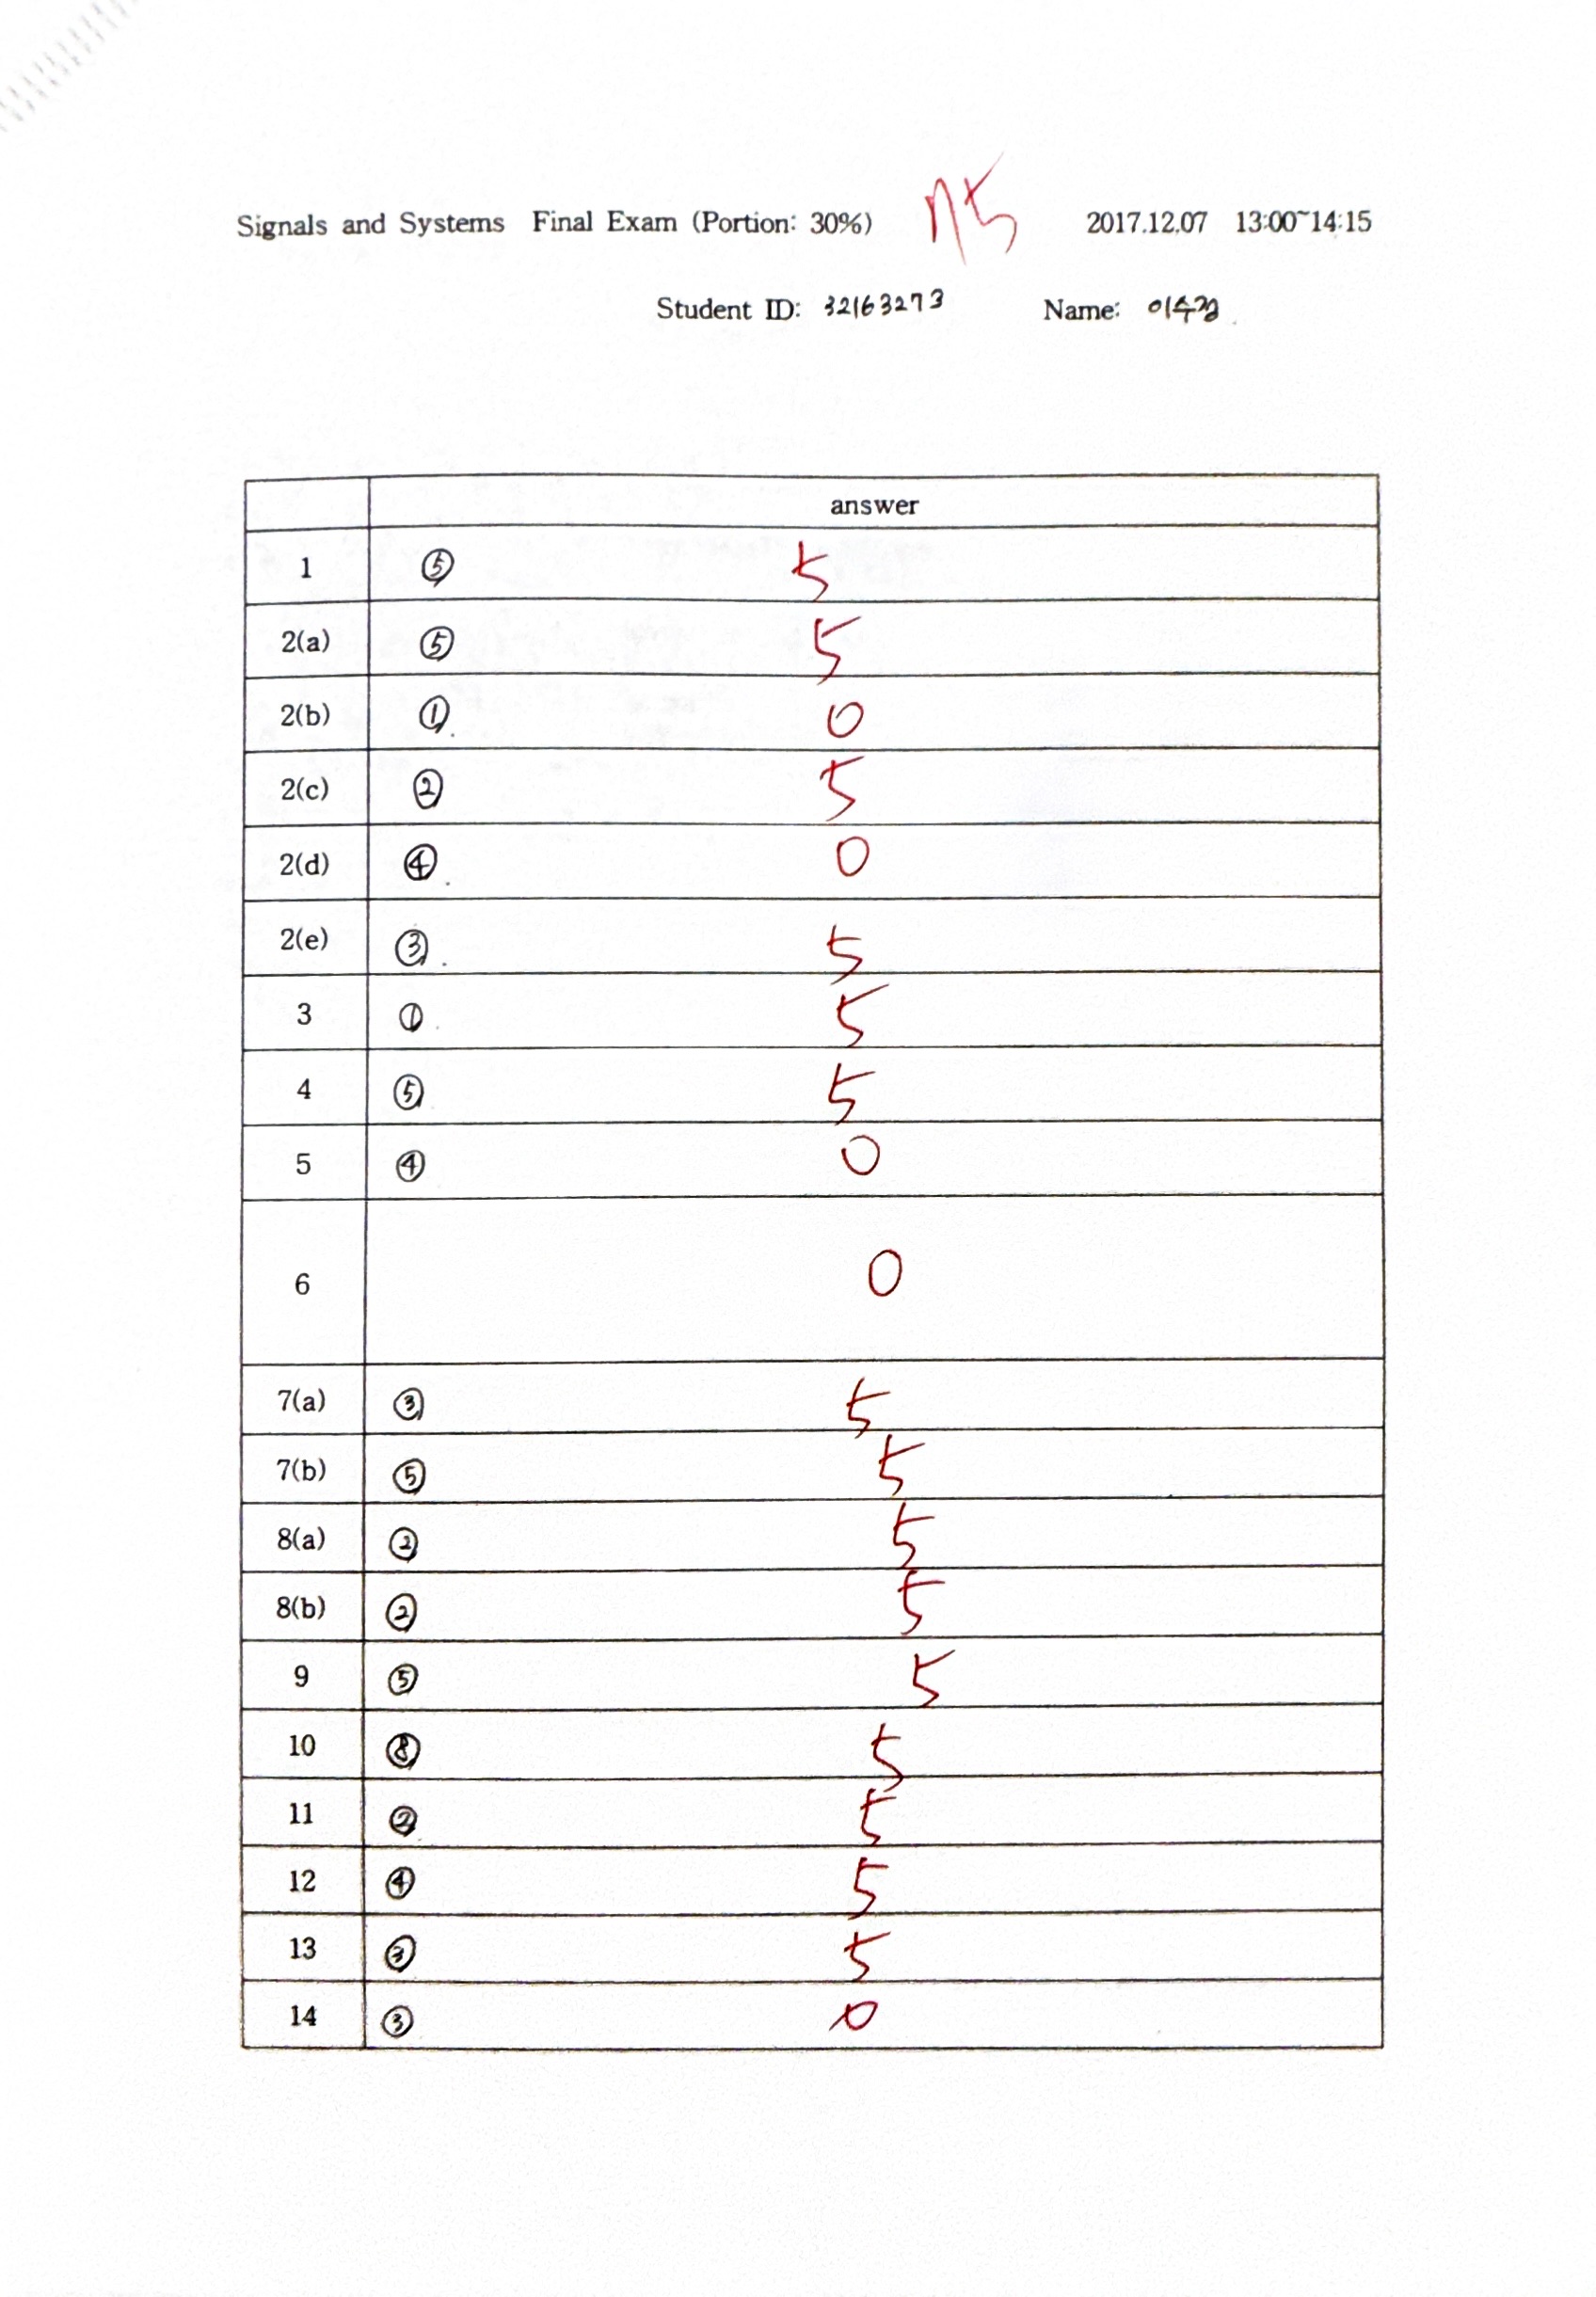 Signals and Systems Final Exam (Portion: 30%) 75 2017.12.07 13:00~14:15
Student ID: 32163273 Name: 이수경
answer
1 ⑤ 5
2(a) ⑤ 5
2(b) ① 0
2(c) ② 5
2(d) ④ 0
2(e) ③ 5
3 ① 5
4 ⑤ 5
5 ④ 0
6 0
7(a) ③ 5
7(b) ⑤ 5
8(a) ② 5
8(b) ② 5
9 ⑤ 5
10 ⑧ 5
11 ② 5
12 ④ 5
13 ③ 5
14 ③ 0